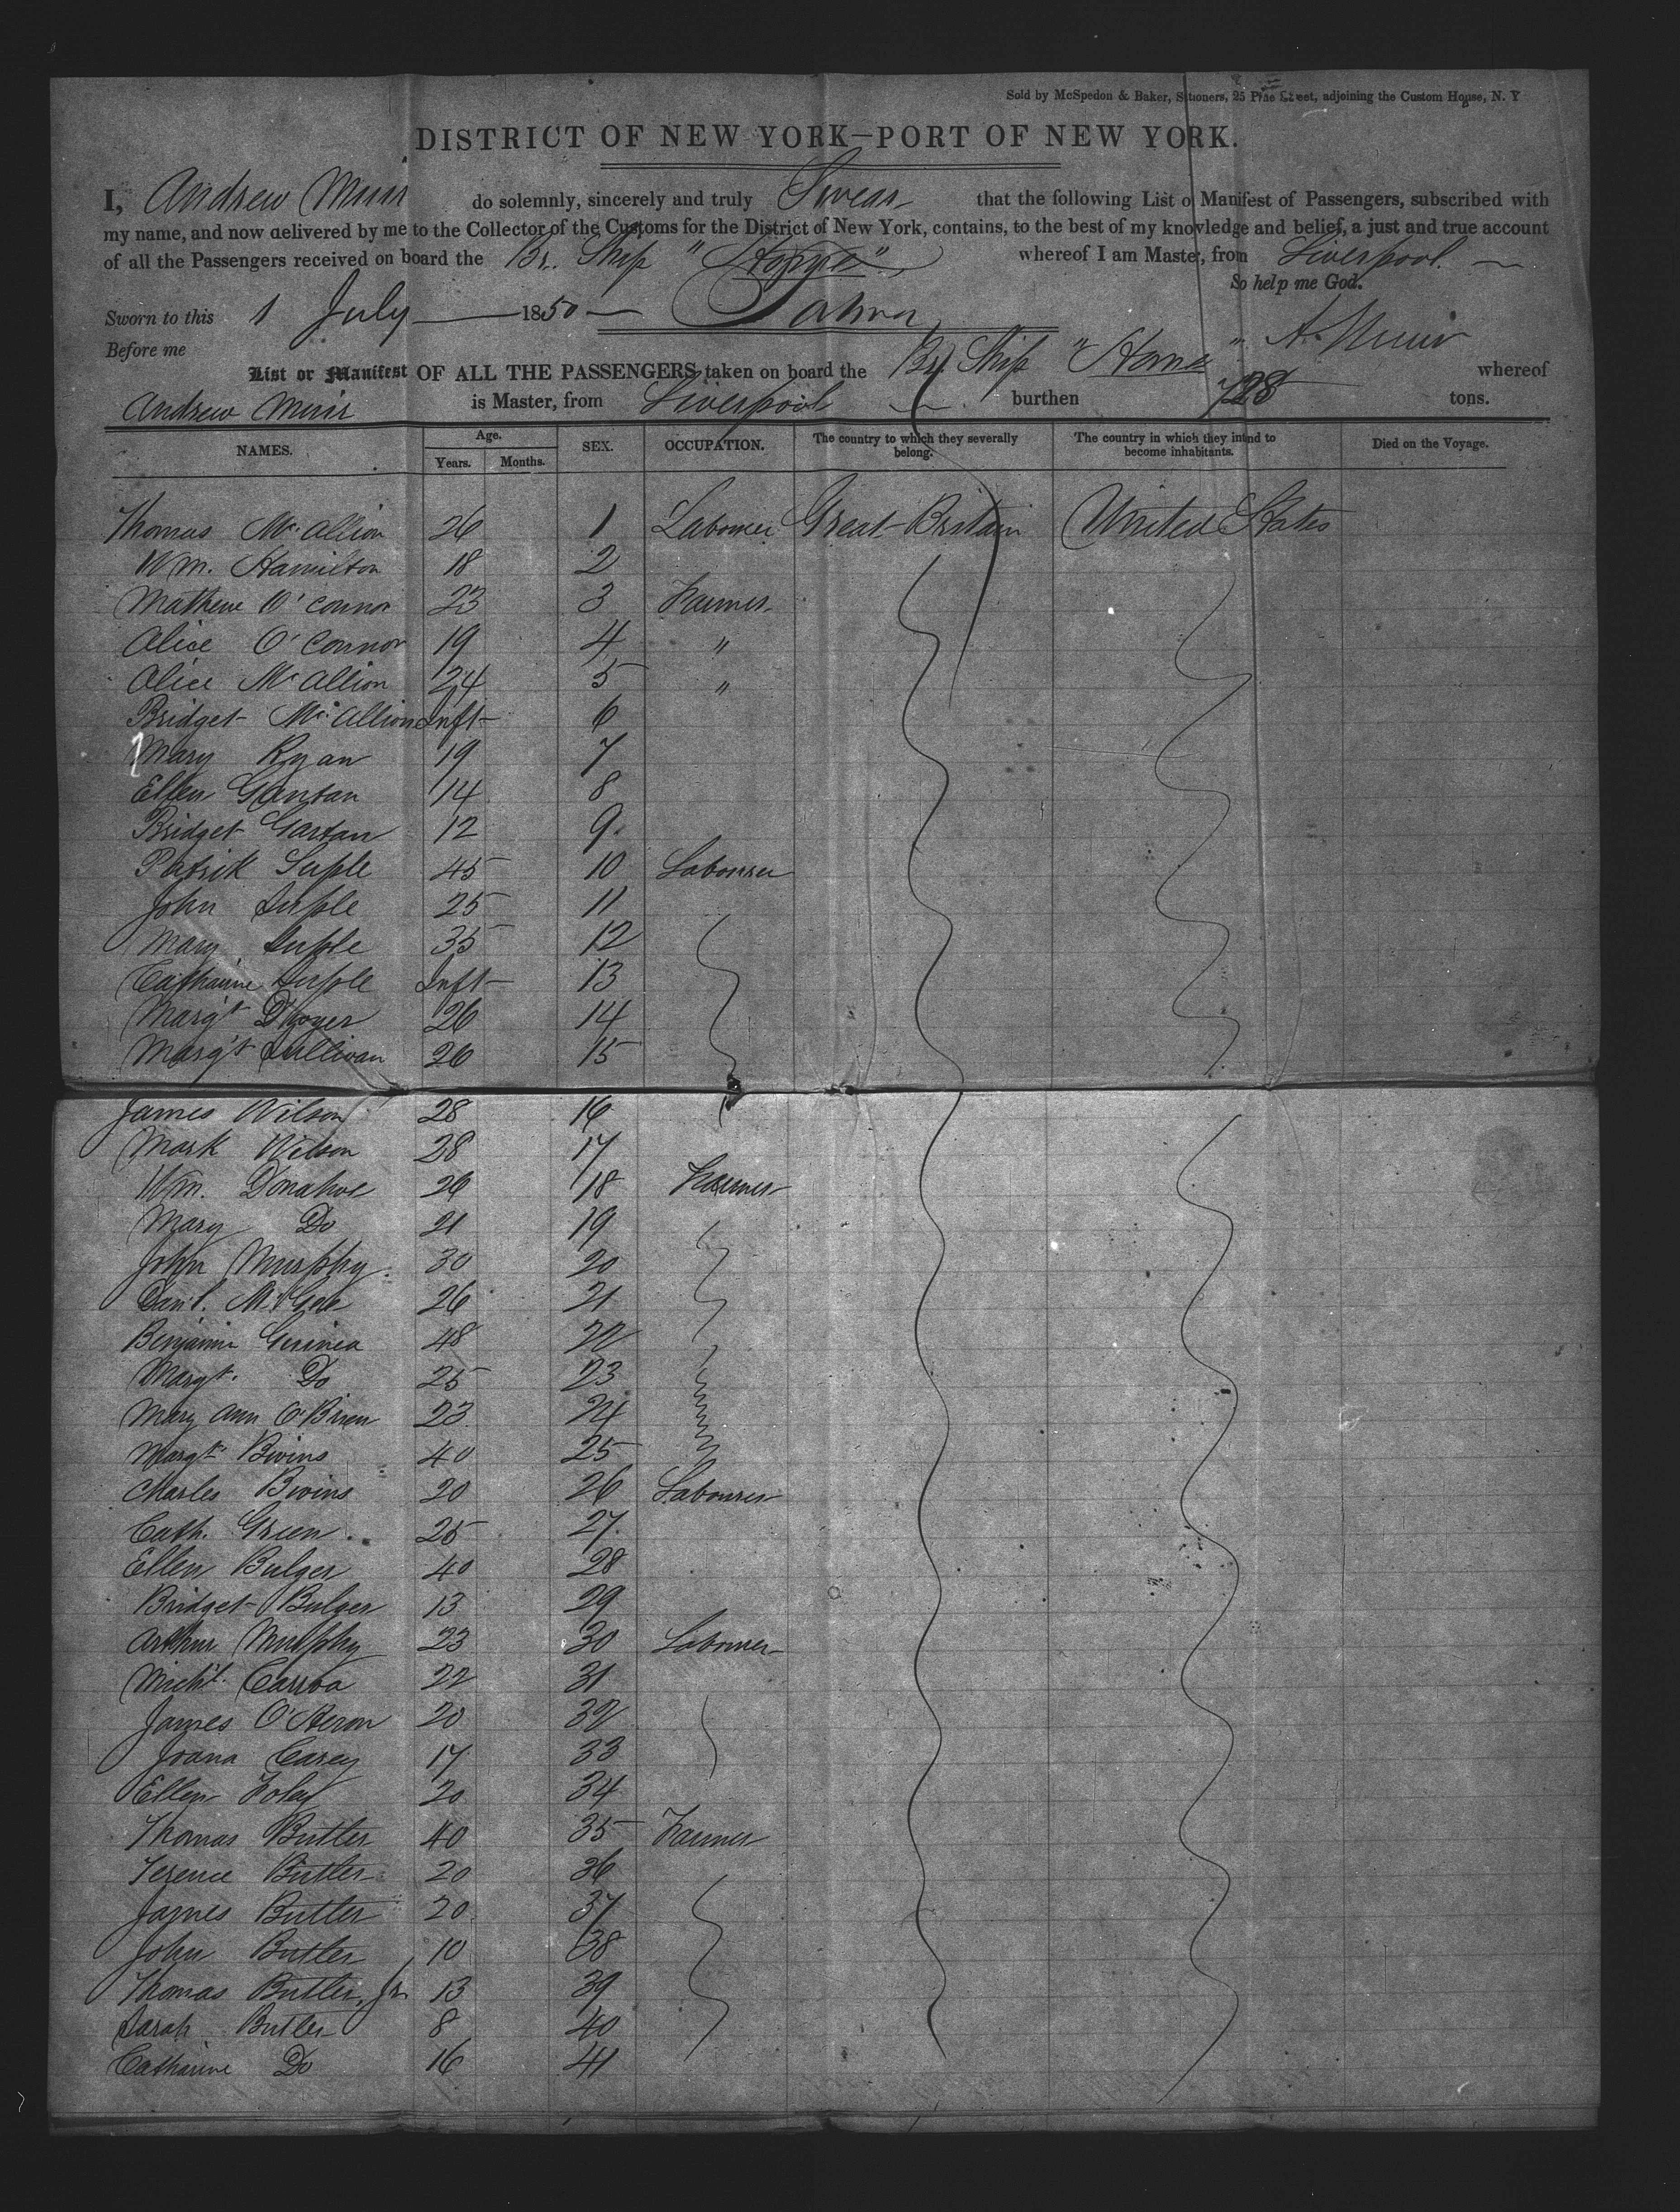 Sold by McSpedon & Baker, Stationers, 25 Pine Street, adjoining the Custom House, N. Y
DISTRICT OF NEW YORK—PORT OF NEW YORK.
I, Andrew Muir do solemnly, sincerely and truly Swear that the following List o Manifest of Passengers, subscribed with
my name, and now delivered by me to the Collector of the Customs for the District of New York, contains, to the best of my knowledge and belief, a just and true account
of all the Passengers received on board the Br. Ship "Home" whereof I am Master, from Liverpool.
So help me God.
Sworn to this 1 July 1850
A. Muir
Before me
List or Manifest OF ALL THE PASSENGERS taken on board the Br. Ship "Home" whereof
Andrew Muir is Master, from Liverpool burthen 728 tons.
NAMES. Age. Years. Months. SEX. OCCUPATION. The country to which they severally belong. The country in which they intend to become inhabitants. Died on the Voyage.
Thomas McAllion 26 1 Labourer Great Britain United States
Wm. Hamilton 18 2
Mathew O'Connor 23 3 Farmer
Alice O'Connor 19 4 "
Alice McAllion 24 5 "
Bridget McAllion Inft 6
Mary Ryan 19 7
Ellen 14 8
Bridget Gartan 12 9
Patrick Suple 45 10 Labourer
John Suple 25 11
Mary Suple 35 12
Catharine Suple Inft 13
Margt Dwyer 26 14
Margt Sullivan 26 15
James Wilson 28 16
Mark Wilson 28 17
Wm. Donahoe 26 18 Farmer
Mary Do 21 19
John Murphy 30 20
Danl. McGee 26 21
Benjamin Guinea 48 22
Margt. Do 25 23
Mary Ann O'Brien 23 24
Margt Bivins 40 25
Charles Bivins 20 26 Labourer
Cath. Green 25 27
Ellen Bulger 40 28
Bridget Bulger 13 29
Arthur Murphy 23 30 Labourer
Michl. 22 31
James O'Heron 20 32
Joana Carey 17 33
Ellen Foley 20 34
Thomas Butler 40 35 Farmer
Terence Butler 20 36
James Butler 20 37
John Butler 10 38
Thomas Butler, Jr 13 39
Sarah Butler 8 40
Catharine Do 16 41